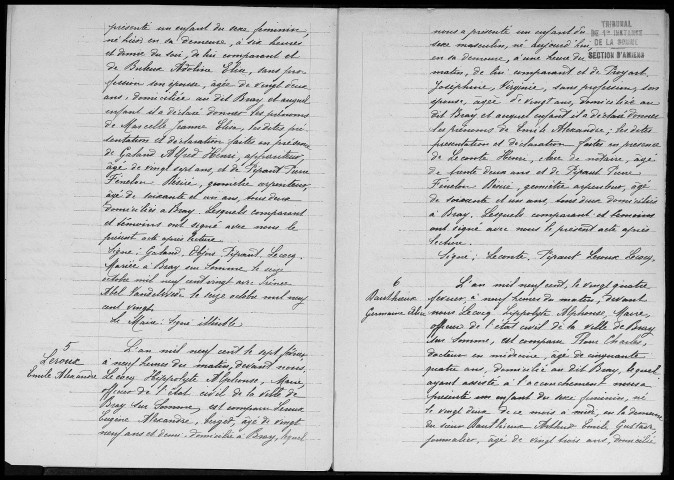 présenté un enfant du sexe féminin,
né hier en sa demeure, à six heures
et demie du soir, de lui comparant et
de Buteux Adolina Elisa, sans pro-
fession son épouse, âgée de vingt deux
ans, domiciliée au dit Bray et auquel
enfant il a déclaré donner les prénoms
de Marcelle Jeanne Elisa, lesdites pré-
sentation et déclaration faites en présence
de Galand Alfred Henri, appariteur,
âgé de vingt sept ans, et de Pépant Pierre
Fénelon Désiré, géomètre arpenteur,
âgé de soixante et un ans, tous deux
domiciliés à Bray. Lesquels comparant
et témoins ont signé avec nous le
présent acte après lecture.
Signé: Galand, Pépant, Lecocq.
Mariée à Bray sur Somme le seize
octobre mil neuf cent vingt avec
Abel le seize octobre mil neuf
cent vingt.
Le Maire: signé illisible
5
Leroux
Emile Alexandre
L'an mil neuf cent le sept février
à neuf heures du matin, devant nous,
Lecocq Hippolyte Alphonse, Maire,
officier de l'état civil de la ville de
Bray sur Somme, est comparu Leroux
Eugène Alexandre, âgé de vingt
neuf ans et demi, domicilié à Bray, lequel
TRIBUNAL
DE 1re INSTANCE
DE LA SOMME
SECTION D'AMIENS
nous a présenté un enfant du
sexe masculin, né aujourd'hui
en sa demeure, à une heure du
matin, de lui comparant et de Proyart
Joséphine Virginie, sans profession, son
épouse, âgée de vingt ans, domiciliée au
dit Bray et auquel enfant il a déclaré donner
les prénoms de Emile Alexandre; les dites
présentation et déclaration faites en présence
de Leconte Henri, clerc de notaire, âgé
de trente deux ans et de Pépant Pierre
Fénelon Désiré, géomètre arpenteur, âgé
de soixante et un ans, tous deux domiciliés
à Bray. Lesquels comparant et témoins
ont signé avec nous le présent acte après
lecture.
Signé: Leconte, Pépant, Leroux, Lecocq.
6
Bauthieux
Germaine
L'an mil neuf cent, le vingt quatre
février, à neuf heures du matin, devant
nous Lecocq Hippolyte Alphonse, Maire,
officier de l'état civil de la ville de Bray
sur Somme, est comparu Charles,
docteur en médecine, âgé de cinquante
quatre ans, domicilié au dit Bray, lequel
ayant assisté à l'accouchement nous a
présenté un enfant du sexe féminin, né
le vingt deux de ce mois à midi, en la demeure
du sieur Bauthieux Arthur Emile Gustave,
journalier, âgé de vingt trois ans, domicilié